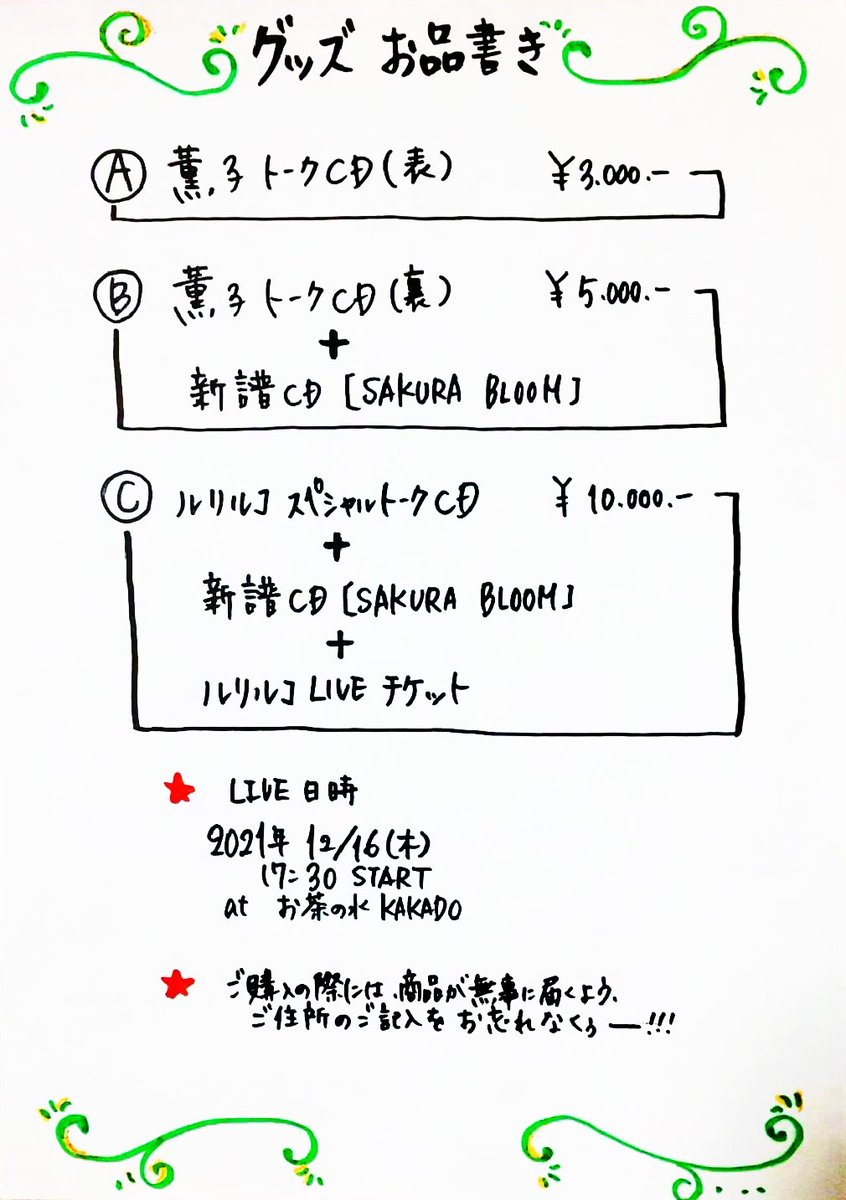 グッズ お品書き
Ⓐ 薫子トークCD(表) ¥3.000.-
Ⓑ 薫子トークCD(裏) ¥5.000.-
+
新譜CD [SAKURA BLOOM]
Ⓒ ルリルコ スペシャルトークCD ¥10.000.-
+
新譜CD [SAKURA BLOOM]
+
ルリルコ LIVE チケット
★ LIVE 日時
2021年 12/16(木)
17:30 START
at お茶の水 KAKADO
★ ご購入の際には、商品が無事に届くよう、
ご住所のご記入をお忘れなくぅー!!!